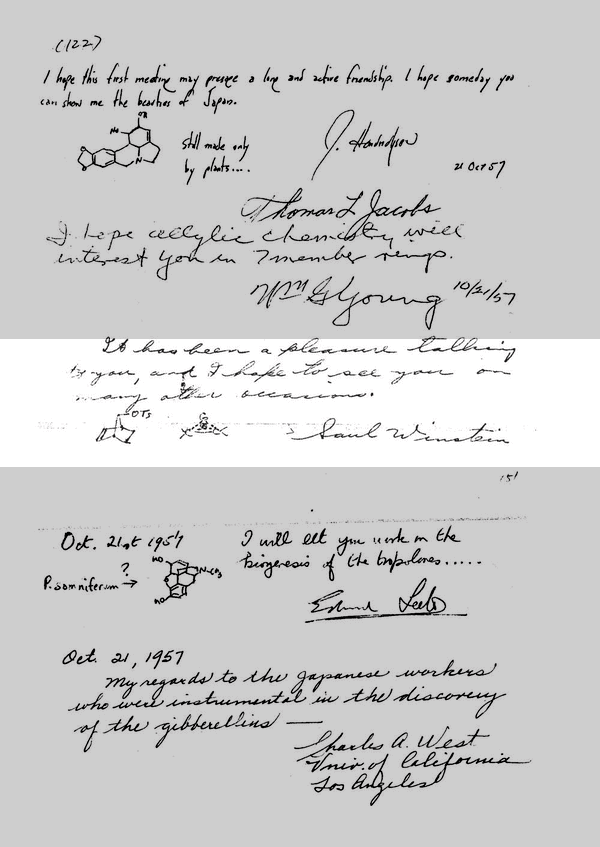 (122)
I hope this first meeting may presage a long and active friendship. I hope someday you
can show me the beauties of Japan.
OH
HO
O
O
N
Still made only
by plants....
J.
21 Oct 57
Thomas L Jacobs
I hope allylic chemistry will
interest you in 7 member rings.
Wm G Young 10/21/57
It has been a pleasure talking
to you, and I hope to see you on
many other occasions.
OTS
Saul Winstein
151
Oct. 21st 1957
I will let you work on the
biogenesis of the tropolones.....
?
P. somniferum →
HO
O
N-CH3
HO
Edward Leete
Oct. 21, 1957
My regards to the Japanese workers
who were instrumental in the discovery
of the gibberellins —
Charles A. West
Univ. of California
Los Angeles